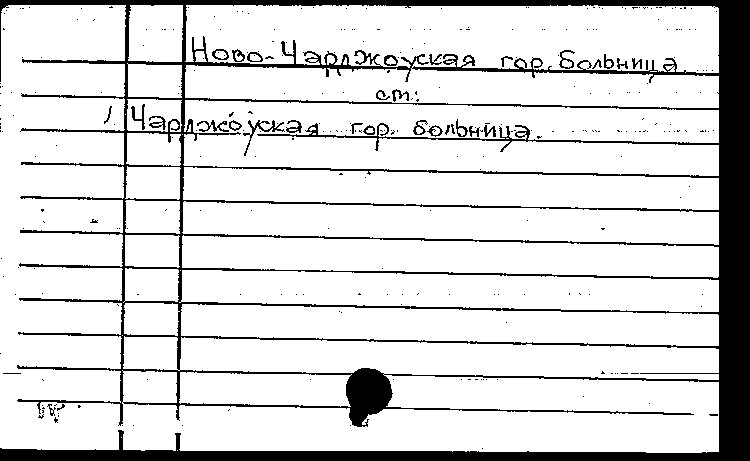 Ново-Чарджоуская гор. Больница
ст:
Чарджоуская гор. больница.